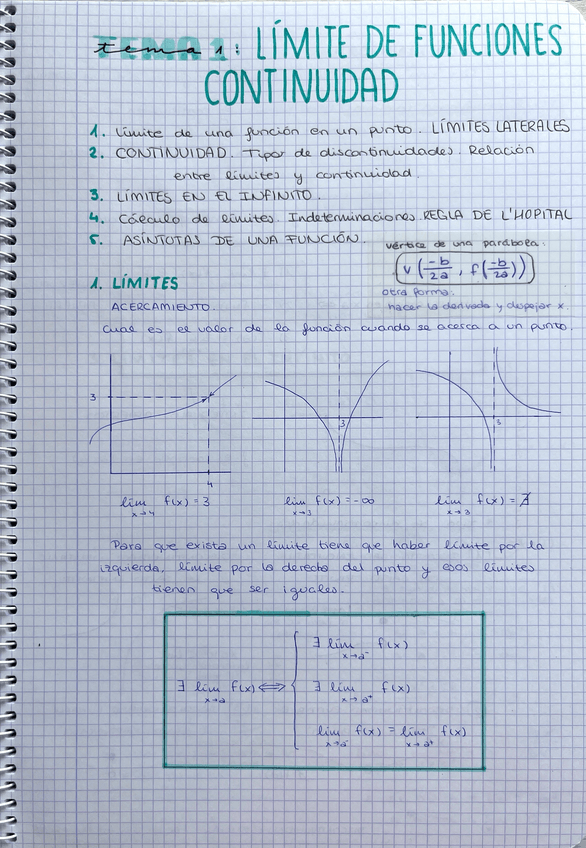 tema 1: LÍMITE DE FUNCIONES
CONTINUIDAD
1. Límite de una función en un punto. LÍMITES LATERALES
2. CONTINUIDAD. Tipos de discontinuidades. Relación
entre límites y continuidad.
3. LÍMITES EN EL INFINITO.
4. Cálculo de límites. Indeterminaciones. REGLA DE L'HOPITAL
5. ASÍNTOTAS DE UNA FUNCIÓN.
vértice de una parábola:
V(-b/2a, f(-b/2a))
otra forma:
hacer la derivada y despejar x.
1. LÍMITES
ACERCAMIENTO.
Cual es el valor de la función cuando se acerca a un punto.
3
4
3
3
lim x→4 f(x) = 3
lim x→3 f(x) = -∞
lim x→3 f(x) = ∄
Para que exista un límite tiene que haber límite por la
izquierda, límite por la derecha del punto y esos límites
tienen que ser iguales.
∃ lim x→a⁻ f(x)
∃ lim x→a f(x) ⟺ { ∃ lim x→a⁺ f(x)
lim x→a⁻ f(x) = lim x→a⁺ f(x)